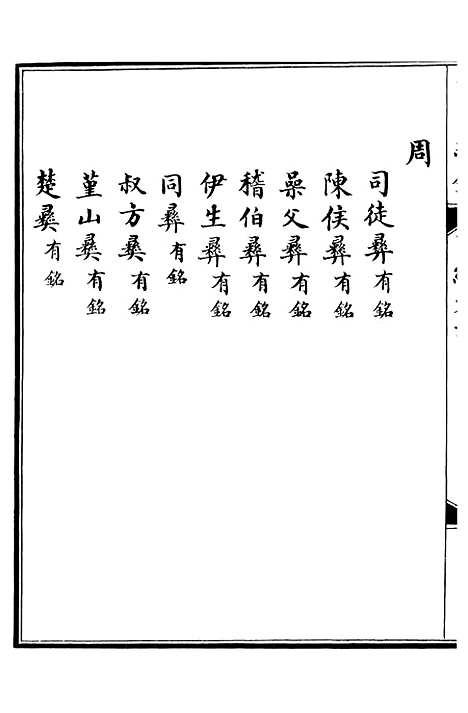 周
司徒彝有銘
陳侯彝有銘
喿父彝有銘
稽伯彝有銘
伊生彝有銘
同彝有銘
叔方彝有銘
堇山彝有銘
楚彝有銘